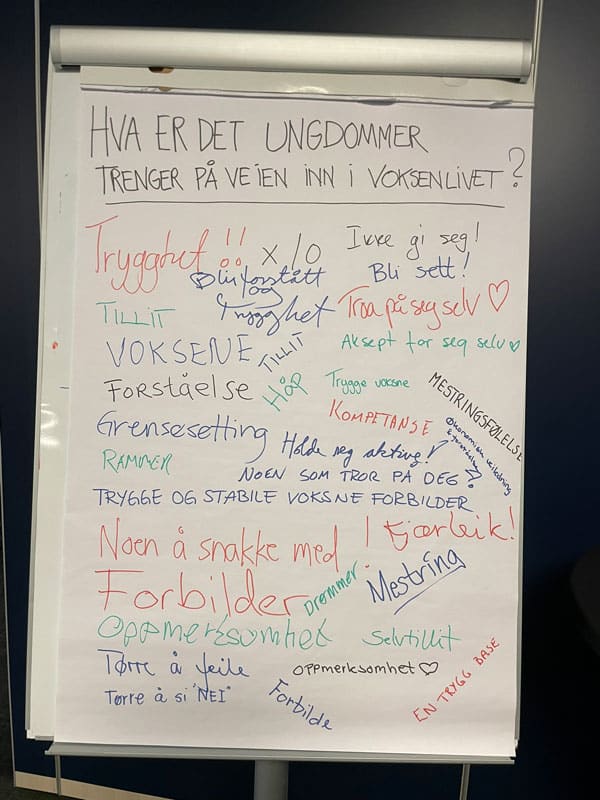 HVA ER DET UNGDOMMER
TRENGER PÅ VEIEN INN I VOKSENLIVET?
Trygghet!! x 10
Ikke gi seg!
Bli forstått
og
Trygghet
Bli sett!
TILLIT
Troa på seg selv ♡
VOKSENE
TILLIT
Aksept for seg selv ♡
FORSTÅELSE
HÅP
Trygge voksne
MESTRINGSFØLELSE
KOMPETANSE
Grensesetting
Holde seg aktive!
Økonomisk veiledning
RAMMER
NOEN SOM TROR PÅ DEG!
TRYGGE OG STABILE VOKSNE FORBILDER
Noen å snakke med!
Kjærleik!
Forbilder
Drømmer
Mestring
Oppmerksomhet
Selvtillit
Tørre å feile
OPPMERKSOMHET ♡
EN TRYGG BASE
Tørre å si "NEI"
Forbilde